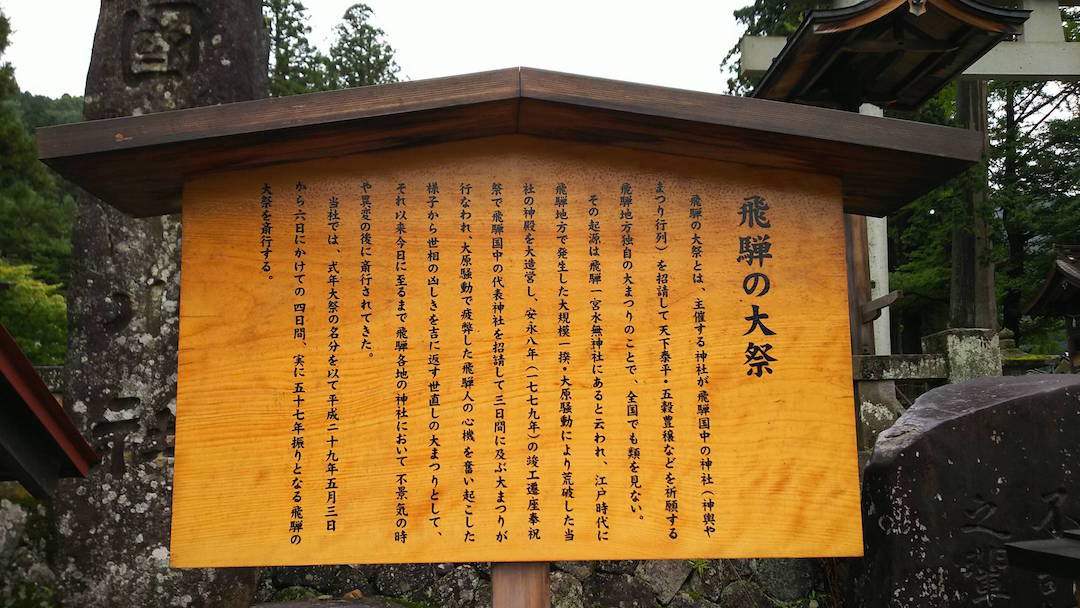 飛騨の大祭
飛騨の大祭とは、主催する神社が飛騨国中の神社（神輿や
まつり行列）を招請して天下泰平・五穀豊穣などを祈願する
飛騨地方独自の大まつりのことで、全国でも類を見ない。
その起源は飛騨一宮水無神社にあると云われ、江戸時代に
飛騨地方で発生した大規模一揆・大原騒動により荒破した当
社の神殿を大造営し、安永八年（一七七九年）の竣工遷座奉祝
祭で飛騨国中の代表神社を招請して三日間に及ぶ大まつりが
行なわれ、大原騒動で疲弊した飛騨人の心機を奮い起こした
様子から世相の凶しきを吉に返す世直しの大まつりとして、
それ以来今日に至るまで飛騨各地の神社において不景気の時
や異変の後に斎行されてきた。
当社では、式年大祭の名分を以て平成二十九年五月三日
から六日にかけての四日間、実に五十七年振りとなる飛騨の
大祭を斎行する。